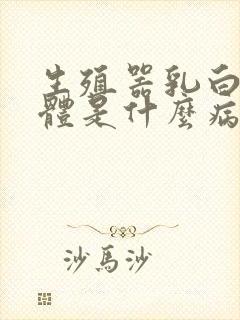 生殖器乳白
體是什麼病
沙馬沙